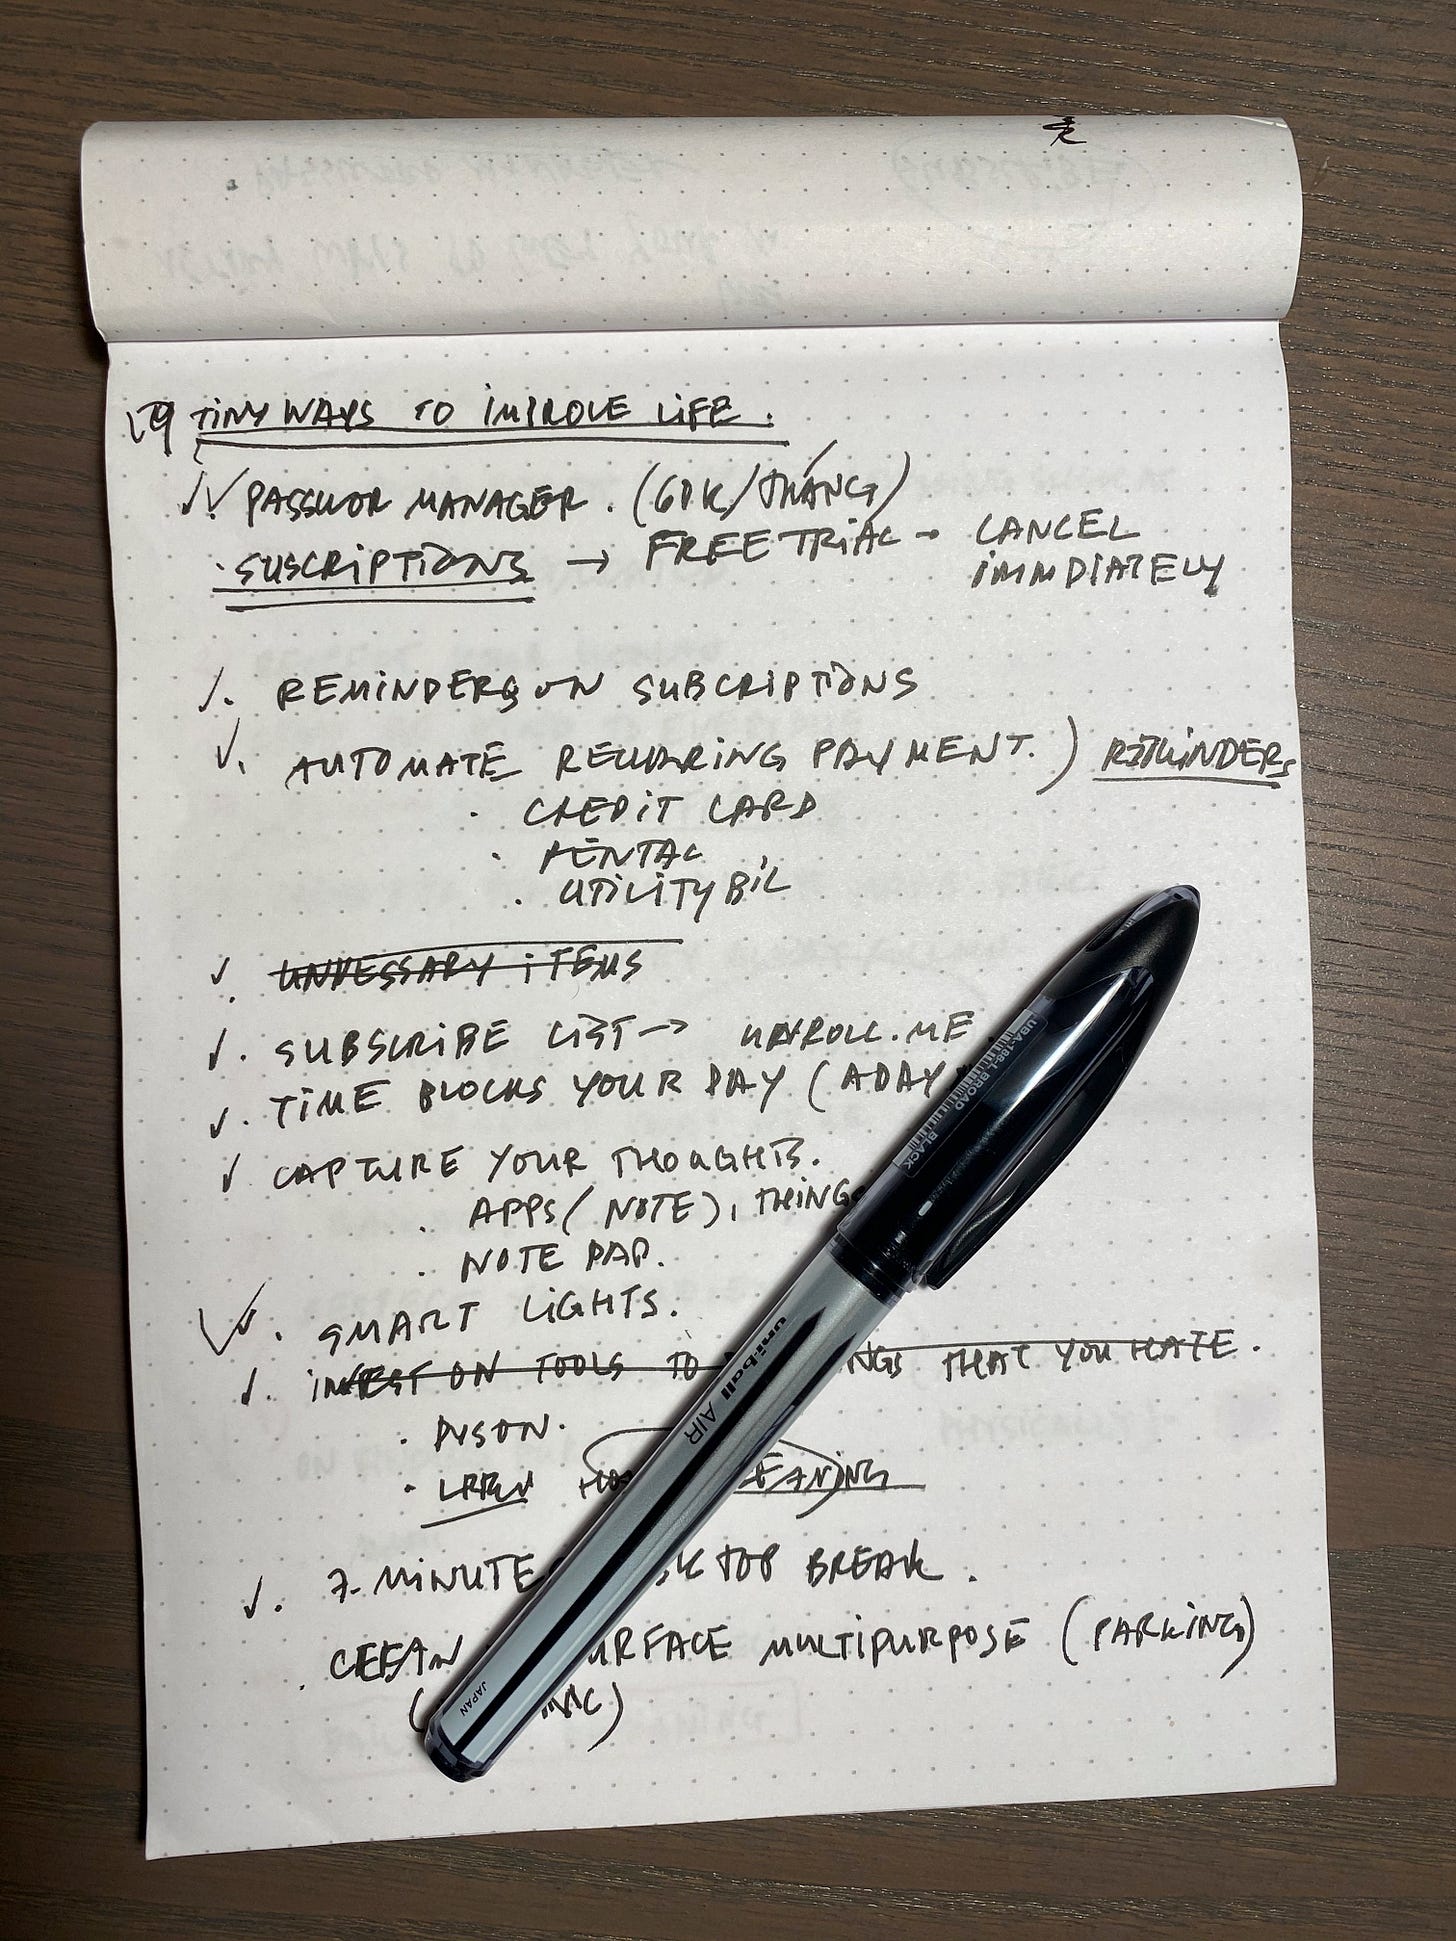 TINY WAYS TO IMPROVE LIFE.
PASSWOR MANAGER. (60K/THÁNG)
SUSCRIPTIONS → FREE TRIAL - CANCEL
IMMDIATELY
REMINDERS ON SUBCRIPTIONS
AUTOMATE RECURRING PAYMENT. ) REMINDERS
CREDIT CARD
RENTAL
UTILITY BIL
UNNESSARY ITEMS
SUBSCRIBE LIST → UNROLL.ME
TIME BLOCKS YOUR DAY (A DAY
CAPTURE YOUR THOUGHTS.
APPS (NOTE), THINGS
NOTE PAD.
SMART LIGHTS.
INVEST ON TOOLS TO NGS THAT YOU HATE.
DYSON.
EANING
7-MINUTE SK TOP BREAK.
CLEAN URFACE MULTIPURPOSE (PARKING)
UBA-188-L BROAD
BLACK
uni-ball AIR
JAPAN